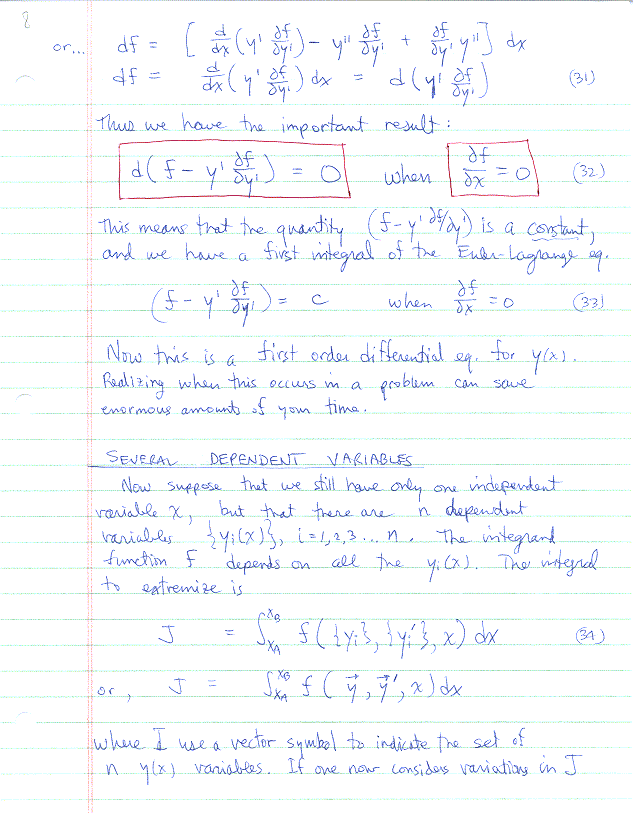 8
or... df = [ d/dx (y' ∂f/∂y') - y'' ∂f/∂y' + ∂f/∂y' y'' ] dx
df = d/dx (y' ∂f/∂y') dx = d (y' ∂f/∂y') (31)
Thus we have the important result:
d ( f - y' ∂f/∂y' ) = 0 when ∂f/∂x = 0 (32)
This means that the quantity (f - y' ∂f/∂y') is a constant,
and we have a first integral of the Euler-Lagrange eq.
(f - y' ∂f/∂y') = c when ∂f/∂x = 0 (33)
Now this is a first order differential eq. for y(x).
Realizing when this occurs in a problem can save
enormous amounts of your time.
SEVERAL DEPENDENT VARIABLES
Now suppose that we still have only one independent
variable x, but that there are n dependent
variables {yi(x)}, i=1,2,3...n. The integrand
function f depends on all the yi(x). The integral
to extremize is
J = ∫_{XA}^{XB} f ({yi}, {yi'}, x) dx (34)
or, J = ∫_{XA}^{XB} f (y⃗, y⃗', x) dx
where I use a vector symbol to indicate the set of
n y(x) variables. If one now considers variations in J